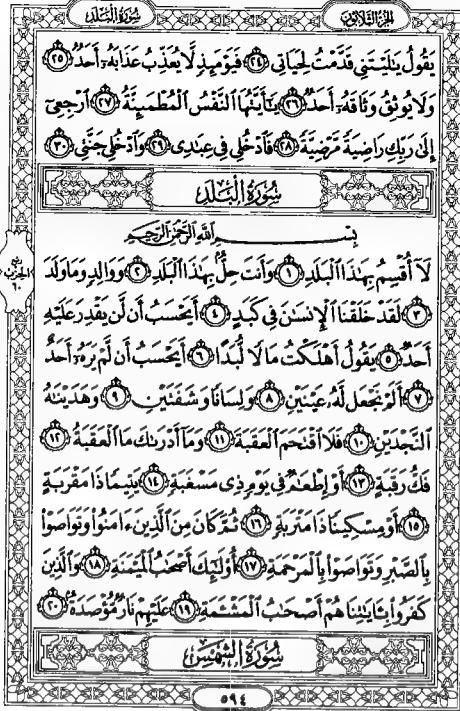 سُورَةُ الْبَلَدِ
الجُزْءُ الثَّلَاثُونَ
يَقُولُ يَٰلَيْتَنِى قَدَّمْتُ لِحَيَاتِى ﴿٢٤﴾ فَيَوْمَئِذٍ لَّا يُعَذِّبُ عَذَابَهُۥٓ أَحَدٌ ﴿٢٥﴾
وَلَا يُوثِقُ وَثَاقَهُۥٓ أَحَدٌ ﴿٢٦﴾ يَٰٓأَيَّتُهَا النَّفْسُ الْمُطْمَئِنَّةُ ﴿٢٧﴾ ارْجِعِىٓ
إِلَىٰ رَبِّكِ رَاضِيَةً مَّرْضِيَّةً ﴿٢٨﴾ فَادْخُلِى فِى عِبَٰدِى ﴿٢٩﴾ وَادْخُلِى جَنَّتِى ﴿٣٠﴾
سُورَةُ الْبَلَدِ
بِسْمِ اللَّهِ الرَّحْمَٰنِ الرَّحِيمِ
لَآ أُقْسِمُ بِهَٰذَا الْبَلَدِ ﴿١﴾ وَأَنتَ حِلٌّۢ بِهَٰذَا الْبَلَدِ ﴿٢﴾ وَوَالِدٍ وَمَا وَلَدَ
﴿٣﴾ لَقَدْ خَلَقْنَا الْإِنسَٰنَ فِى كَبَدٍ ﴿٤﴾ أَيَحْسَبُ أَن لَّن يَقْدِرَ عَلَيْهِ
أَحَدٌ ﴿٥﴾ يَقُولُ أَهْلَكْتُ مَالًا لُّبَدًا ﴿٦﴾ أَيَحْسَبُ أَن لَّمْ يَرَهُۥٓ أَحَدٌ
﴿٧﴾ أَلَمْ نَجْعَل لَّهُۥ عَيْنَيْنِ ﴿٨﴾ وَلِسَانًا وَشَفَتَيْنِ ﴿٩﴾ وَهَدَيْنَٰهُ
النَّجْدَيْنِ ﴿١٠﴾ فَلَا اقْتَحَمَ الْعَقَبَةَ ﴿١١﴾ وَمَآ أَدْرَىٰكَ مَا الْعَقَبَةُ ﴿١٢﴾
فَكُّ رَقَبَةٍ ﴿١٣﴾ أَوْ إِطْعَٰمٌ فِى يَوْمٍ ذِى مَسْغَبَةٍ ﴿١٤﴾ يَتِيمًا ذَا مَقْرَبَةٍ
﴿١٥﴾ أَوْ مِسْكِينًا ذَا مَتْرَبَةٍ ﴿١٦﴾ ثُمَّ كَانَ مِنَ الَّذِينَ ءَامَنُوا۟ وَتَوَاصَوْا۟
بِالصَّبْرِ وَتَوَاصَوْا۟ بِالْمَرْحَمَةِ ﴿١٧﴾ أُو۟لَٰٓئِكَ أَصْحَٰبُ الْمَيْمَنَةِ ﴿١٨﴾ وَالَّذِينَ
كَفَرُوا۟ بِـَٔايَٰتِنَا هُمْ أَصْحَٰبُ الْمَشْـَٔمَةِ ﴿١٩﴾ عَلَيْهِمْ نَارٌ مُّؤْصَدَةٌۢ ﴿٢٠﴾
سُورَةُ الشَّمْسِ
٥٩٤
الحزب
٦٠